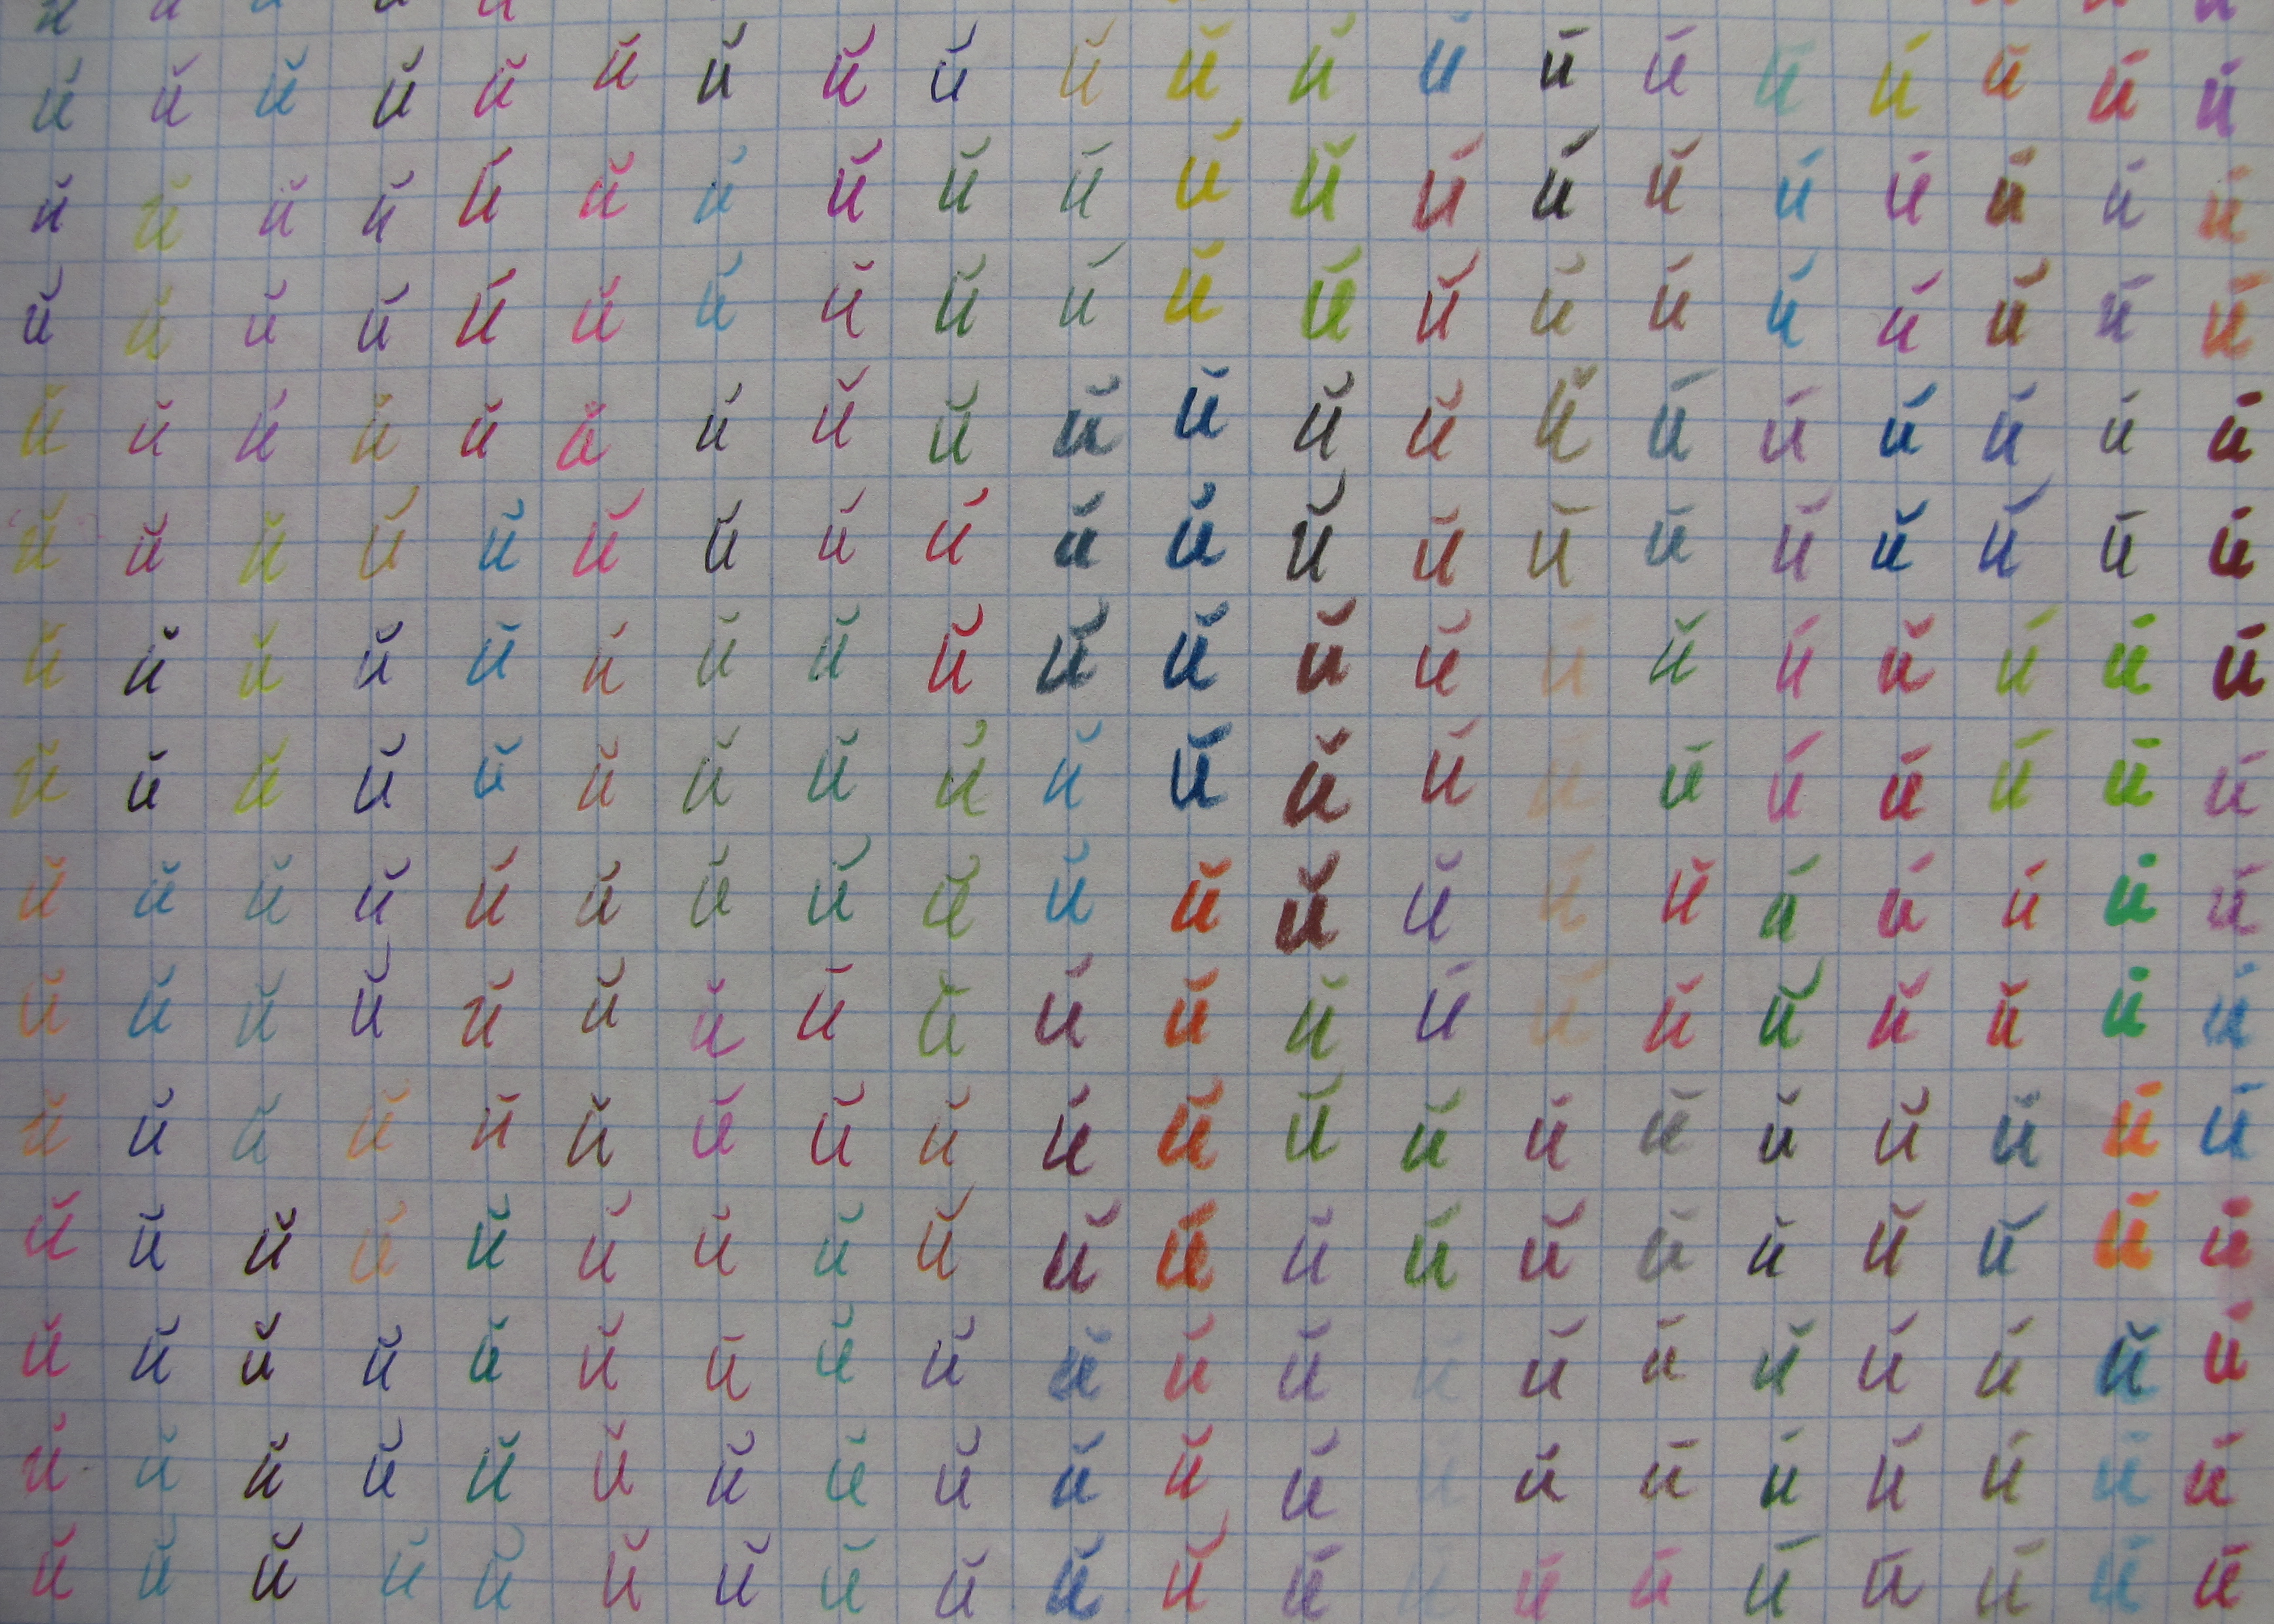 й й й й й й й й й й й й й й й й й й й й
й й й й й й й й й й й й й й й й й й й й
й й й й й й й й й й й й й й й й й й й й
й й й й й й й й й й й й й й й й й й й й
й й й й й й й й й й й й й й й й й й й й
й й й й й й й й й й й й й й й й й й й й
й й й й й й й й й й й й й й й й й й й й
й й й й й й й й й й й й й й й й й й й й
й й й й й й й й й й й й й й й й й й й й
й й й й й й й й й й й й й й й й й й й й
й й й й й й й й й й й й й й й й й й й й
й й й й й й й й й й й й й й й й й й й й
й й й й й й й й й й й й й й й й й й й й
й й й й й й й й й й й й й й й й й й й й